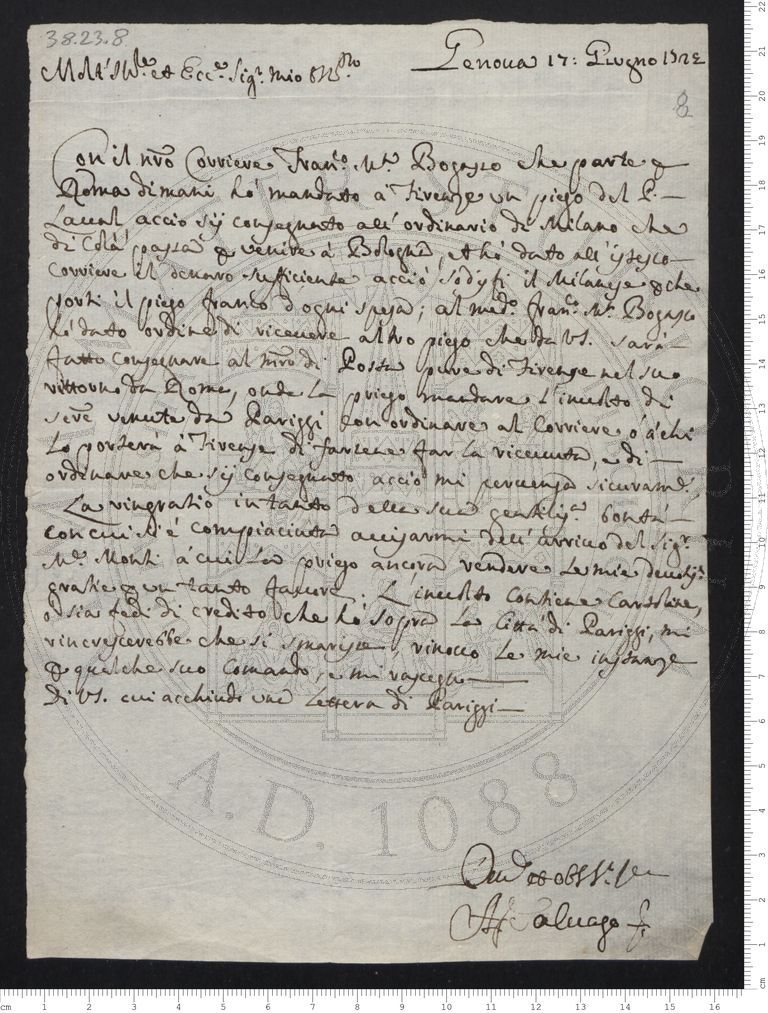 38.23.8
Genova 17: Giugno 1722
Molt' Ill.e et Ecc.e Sig.r mio
8
Con il nr̃o Corriere Fran.o M.a Bogasso che parte p
Roma dimani hò mandato à Firenze un piego del P.
Laval acciò sij consegnato all' ordinario di Milano che
di Colà passa p venire à Bologna, et hò dato all' istesso
Corriere il denaro sufficiente acciò sodisfi il Milanese p che
porti il piego franco d'ogni spesa; al med.o Fran.o M.a Bogasso
hò dato ordine di ricevere altro piego che da VS. sarà
fatto consegnare al mr̃o di Posta pure di Firenze nel suo
rittorno da Roma, onde la priego mandare l'involto di
venute da Pariggi con ordinare al Corriere o à chi
lo porterà à Firenze di farsene far la ricevuta, e di
ordinare che sij consegnato acciò mi pervenga sicuram.e
La ringratio in tanto della sua gentiliss.a bontà
con cui si è compiaciuta avisarmi dell' arrivo del Sig.r
M.e Monti à cui la priego ancora rendere le mie devotis.e
gratie p un tanto favore. L'involto contiene Cartoline,
o sia fedi di credito che hò sopra la Città di Pariggi, mi
rincrescerebbe che si smarisse, rinovo le mie instanze
p qualche suo Comando, e mi rassegno
Di VS. cui acchiudo una lettera di Pariggi
Salvago
A.D. 1088